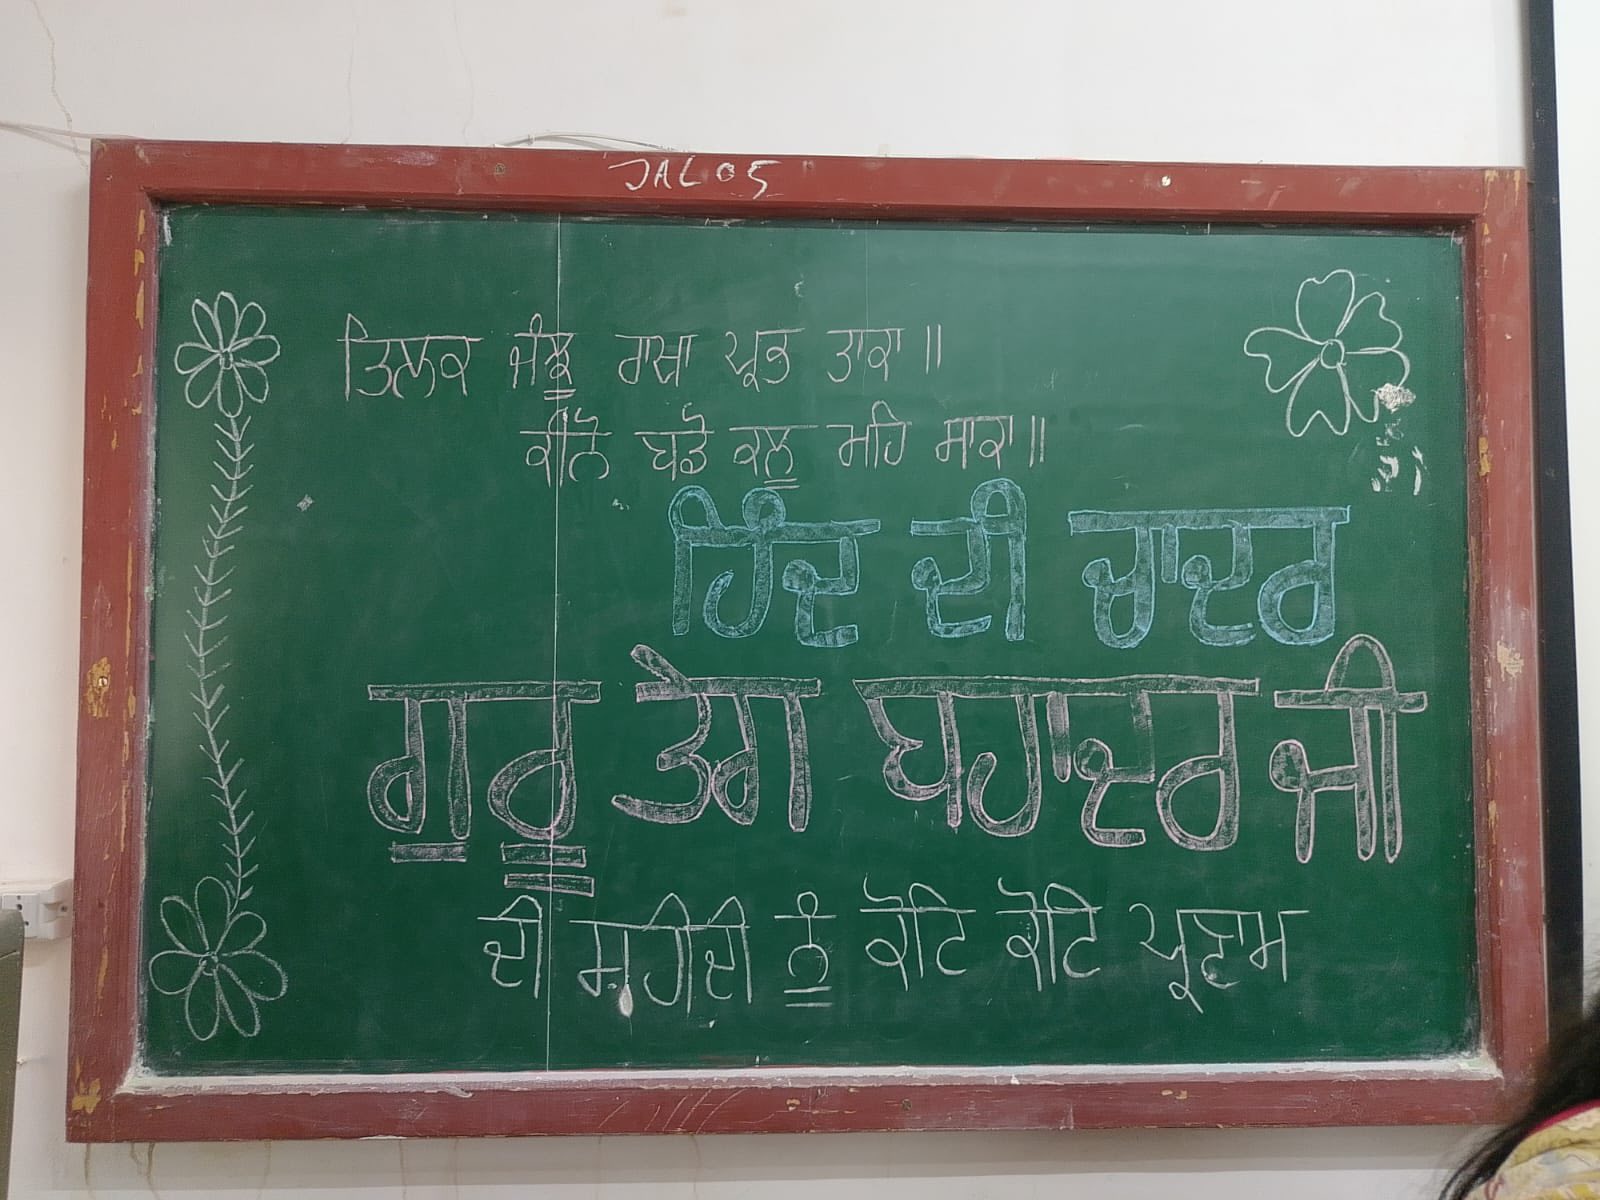 JAL 05
ਤਿਲਕ ਜੰਞੂ ਰਾਖਾ ਪ੍ਰਭ ਤਾਕਾ॥
ਕੀਨੋ ਬਡੋ ਕਲੂ ਮਹਿ ਸਾਕਾ॥
ਹਿੰਦ ਦੀ ਚਾਦਰ
ਗੁਰੂ ਤੇਗ ਬਹਾਦਰ ਜੀ
ਦੀ ਸ਼ਹੀਦੀ ਨੂੰ ਕੋਟਿ ਕੋਟਿ ਪ੍ਰਣਾਮ